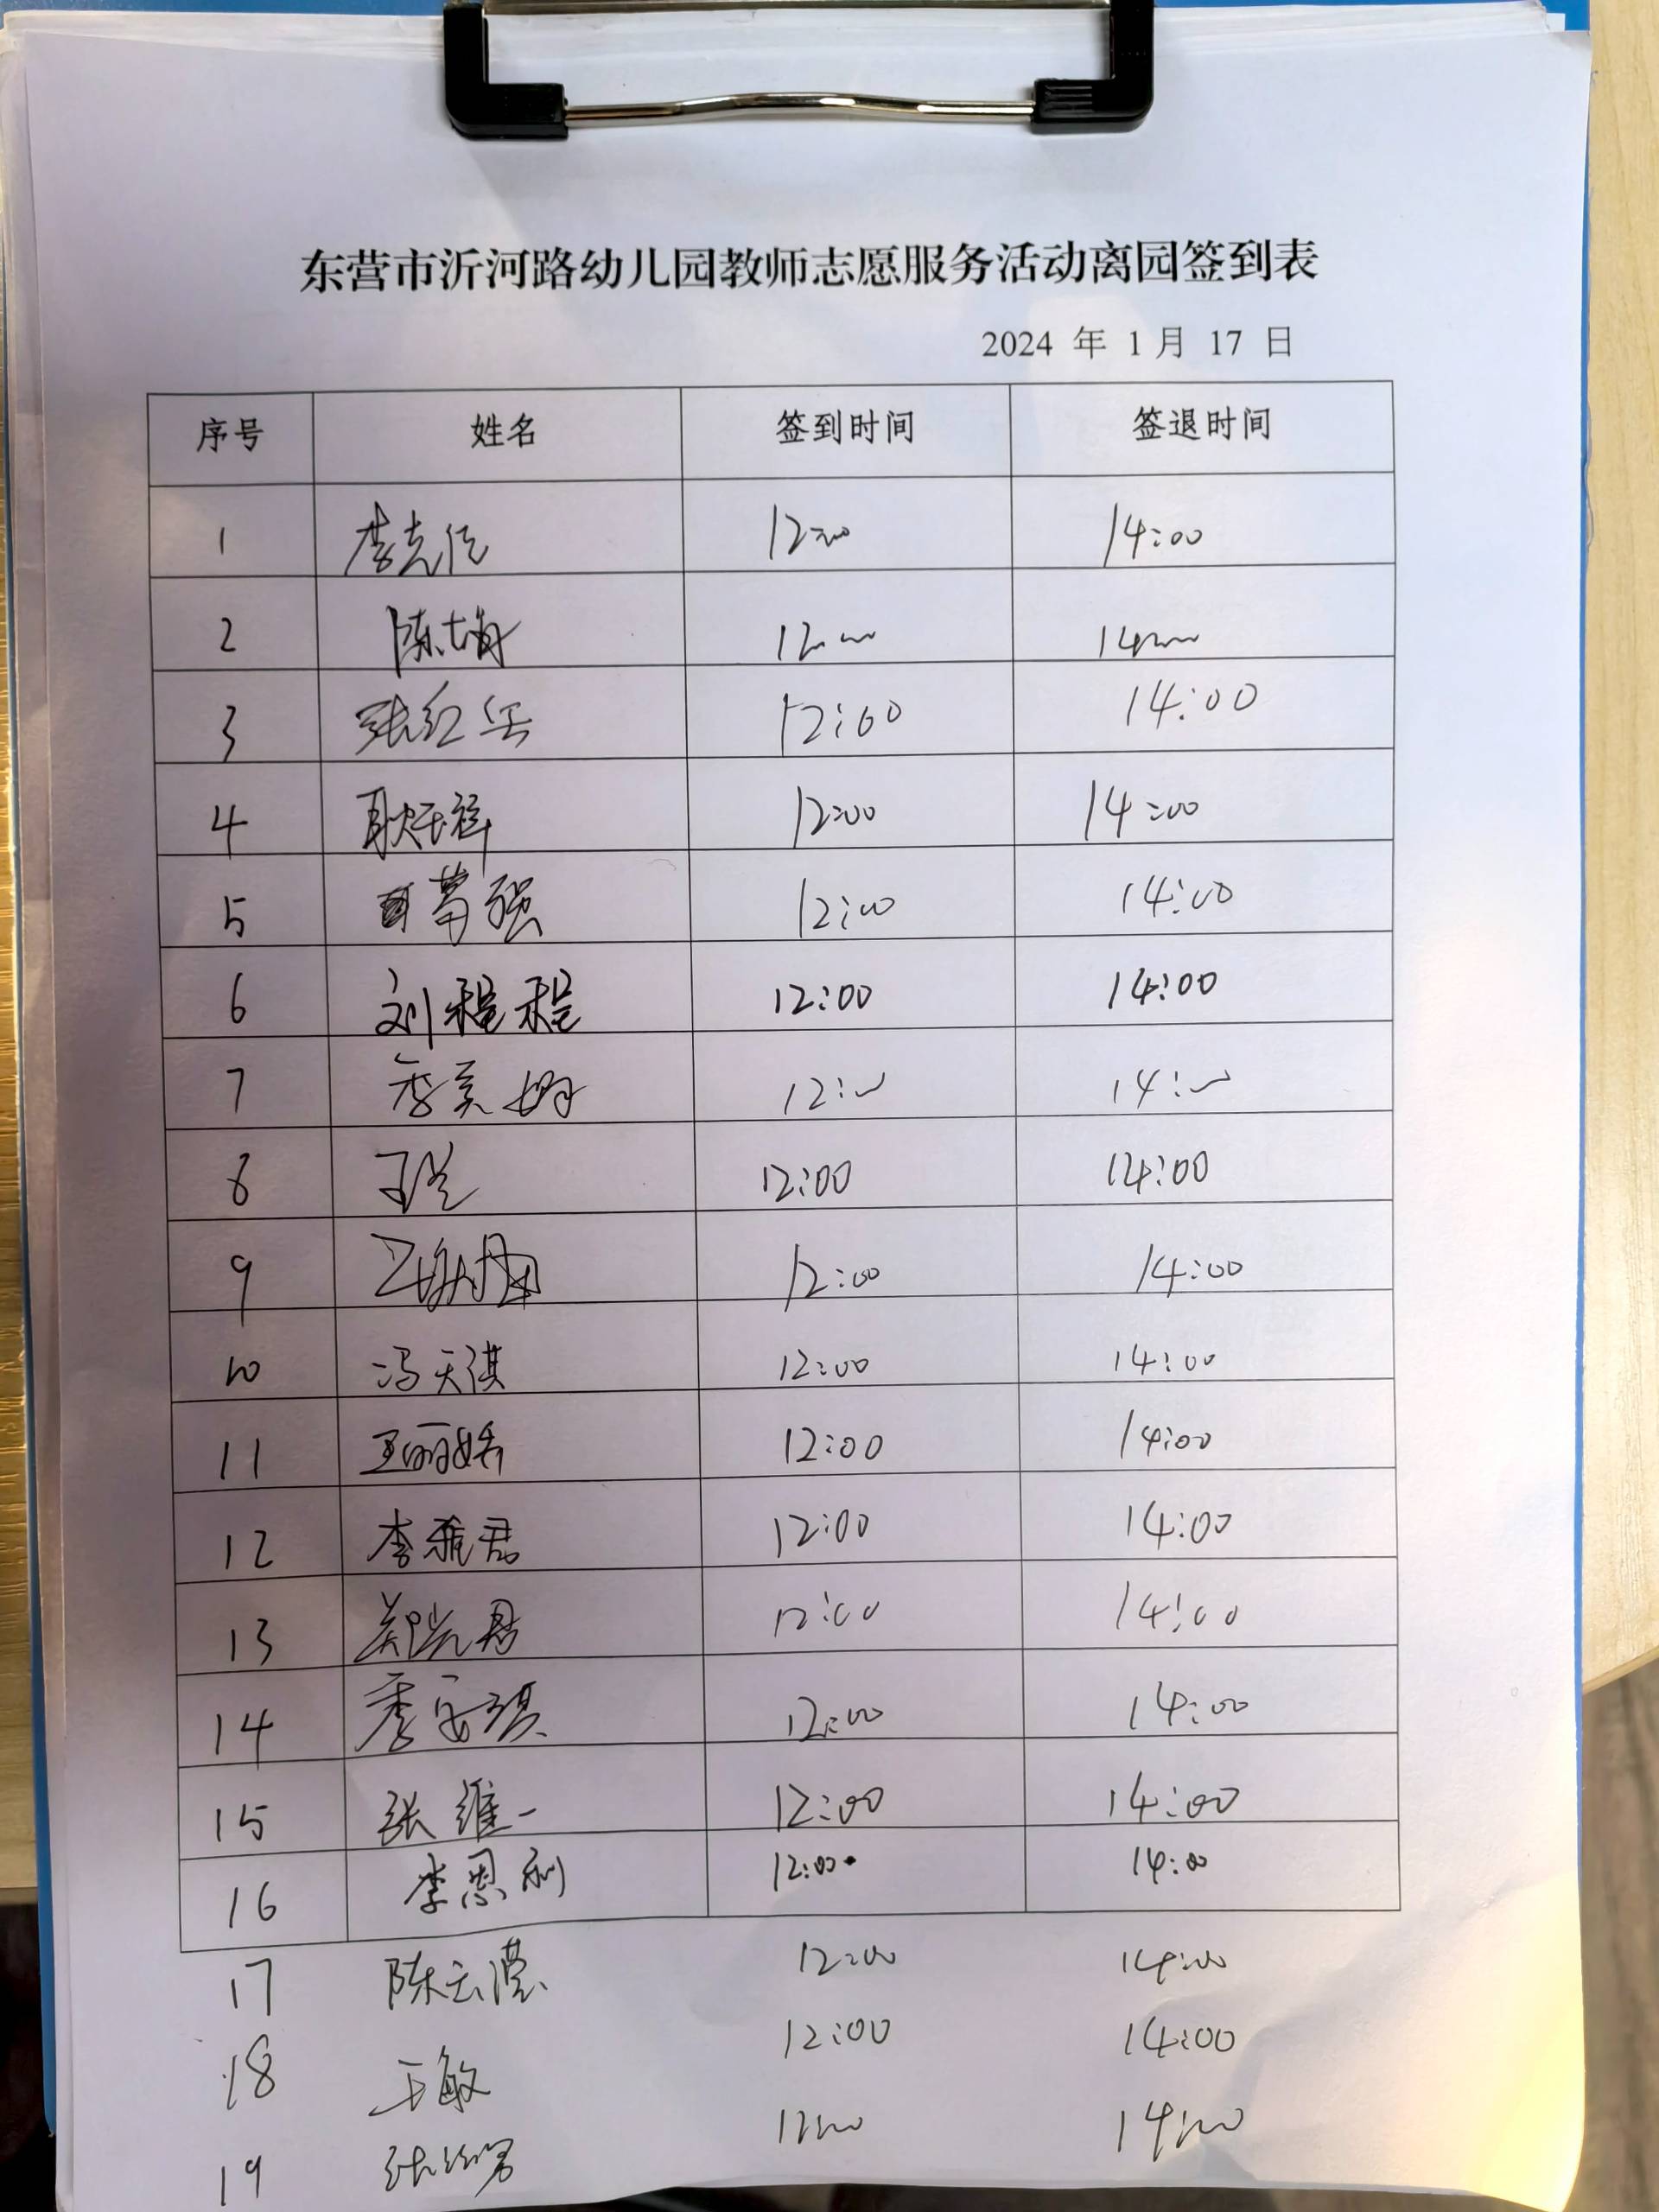 东营市沂河路幼儿园教师志愿服务活动离园签到表
2024 年 1 月 17 日
序号 姓名 签到时间 签退时间
1 李克俭 12:00 14:00
2 陈梅 12:00 14:00
3 张红岳 12:00 14:00
4 耿玉祥 12:00 14:00
5 常强 12:00 14:00
6 刘程程 12:00 14:00
7 季美娜 12:00 14:00
8 12:00 14:00
9 12:00 14:00
10 冯天淇 12:00 14:00
11 王丽娇 12:00 14:00
12 李雅君 12:00 14:00
13 12:00 14:00
14 季安琪 12:00 14:00
15 张维一 12:00 14:00
16 李恩利 12:00 14:00
17 陈云滢 12:00 14:00
18 王敏 12:00 14:00
19 12:00 14:00